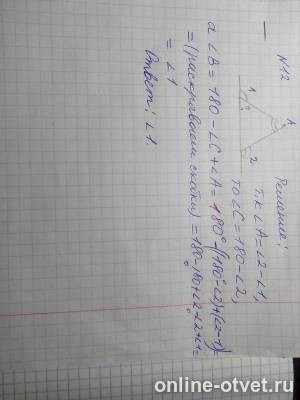 N12
Решение:
1 A 2
Т.К ∠A=∠2-∠1,
то ∠C=180-∠2,
а ∠B=180-∠C+∠A=180°-(180°-∠2)+(∠2-1)=
=(раскрываем скобки)=180-180+∠2-∠2+∠1=
=∠1
Ответ: ∠1.
online-otvet.ru